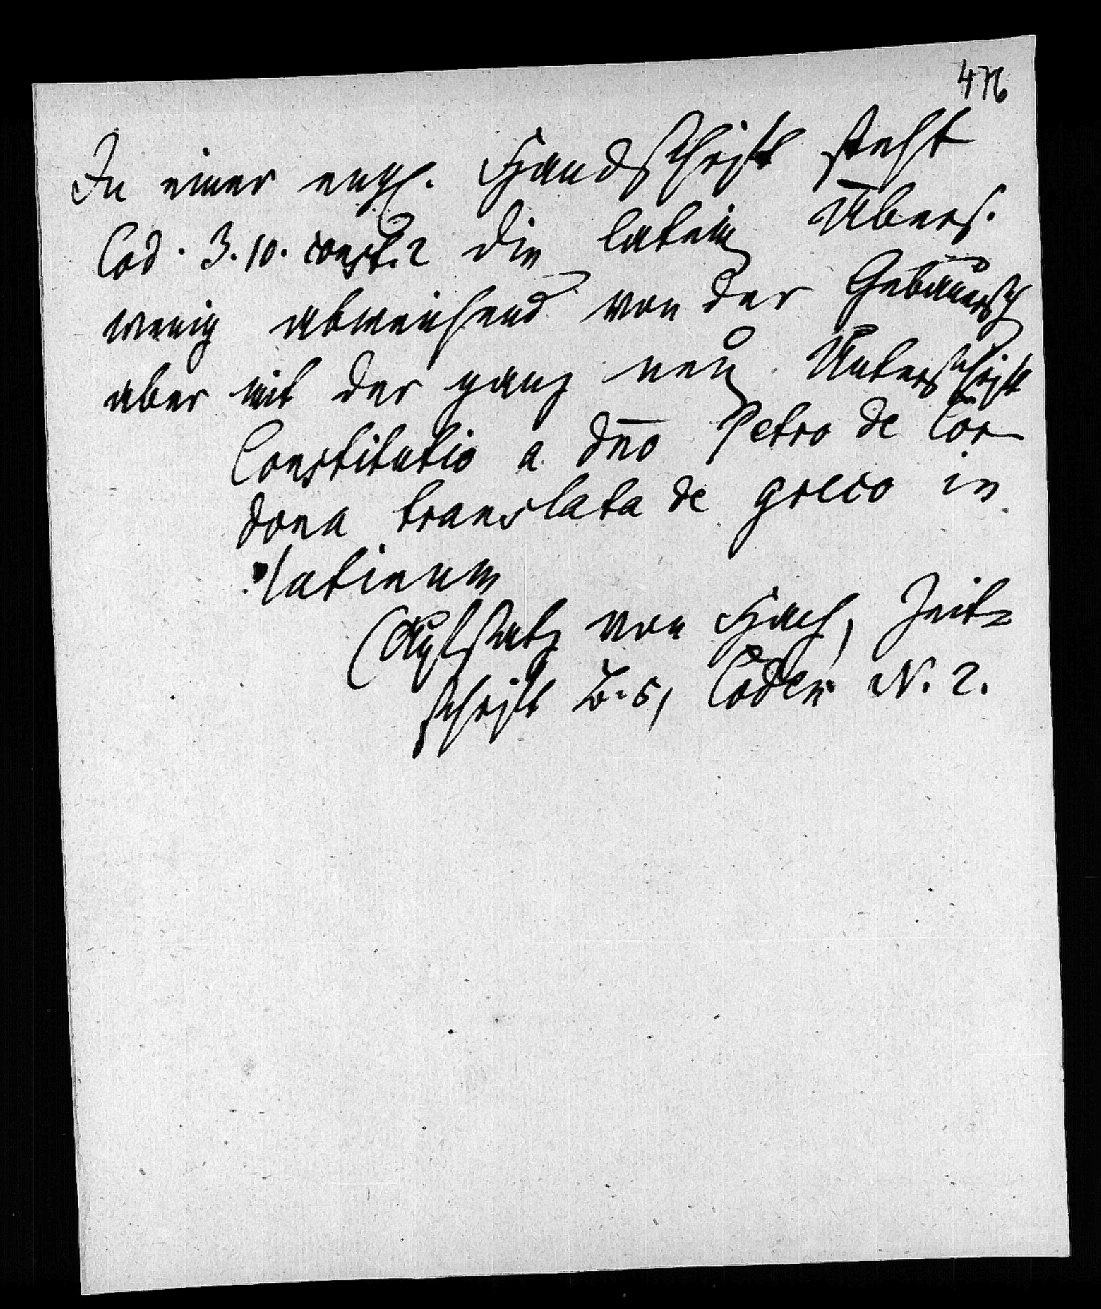 476
In einer engl. Handschrift steht
Cod. 3.10. const. 2 die latein Übers.
wenig abweichend von der Gebauersch
aber mit der ganz neuen Unterschrift
Constitutio a dno Petro de Car
dona translata de greco in
latinum
(Aufsatz von Hach, Zeit-
schrift B. 5, Codex N. 2.